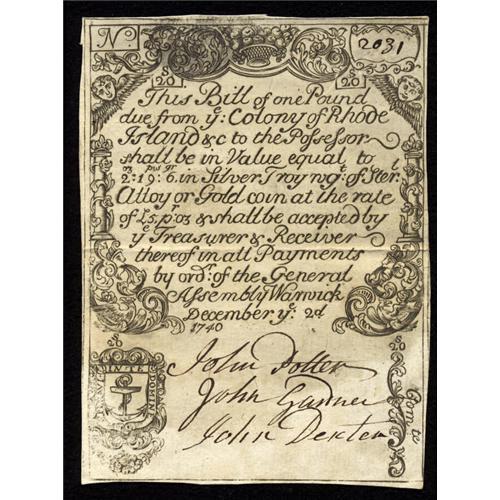 No
2031
20 S
S 20
This Bill of one Pound
due from ye: Colony of Rhode
Island &c to the Possessor
shall be in Value equal to
oz pwt gr
2:19:6. in Silver Troy wgt: of Sterl
Alloy or Gold coin at the rate
of £5 pr oz & shall be accepted by
ye Treasurer & Receiver
thereof in all Payments
by ordr: of the General
Assembly Warwick
December ye: 2d
1740
20 S
S 20
John Potter
John Gardner
John Dexter
IN TE DOMINE
Com tee